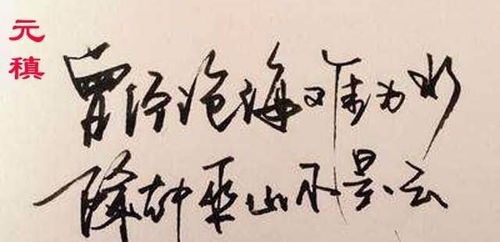 元稹
曾经沧海难为水
除却巫山不是云